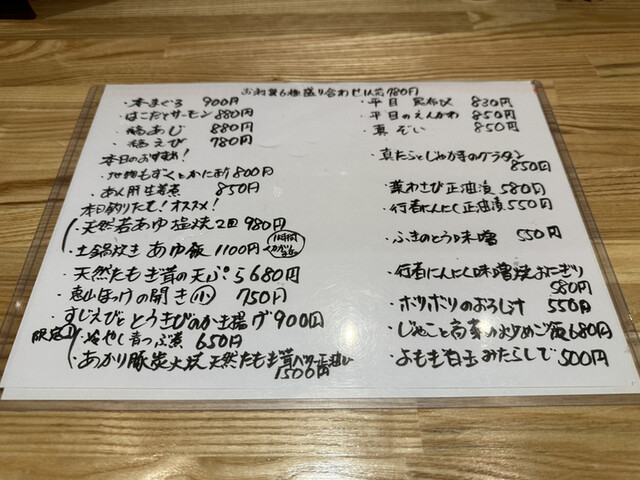 お刺身6種盛り合わせ1人前780円
・本まぐろ 900円
・はこだてサーモン 880円
・縞あじ 880円
・縞えび 780円
本日のおすすめ!
・地物もずくとかにあし 800円
・あん肝生姜煮 850円
本日釣りたて!オススメ!
・天然若あゆ塩焼2匹 980円
・土鍋炊きあゆ飯 1100円
1時間くらい
・天然たもぎ茸の天ぷら 680円
・恵山ほっけの開き 小 750円
・すじえびととうきびのかき揚げ 900円
限定
・冷やし青つぶ煮 650円
・あかり豚炭火焼天然たもぎ茸バター正油
1500円
・平目 昆布〆 830円
・平目のえんがわ 850円
・真ぞい 850円
・真たらとじゃが芋のグラタン
850円
・葉わさび正油漬 580円
・行者にんにく正油漬 550円
・ふきのとう味噌 550円
・行者にんにく味噌焼おにぎり
580円
・ホリホリのおろし汁 550円
・じゃこと高菜の炒めご飯 680円
・よもぎ白玉みたらしで 500円